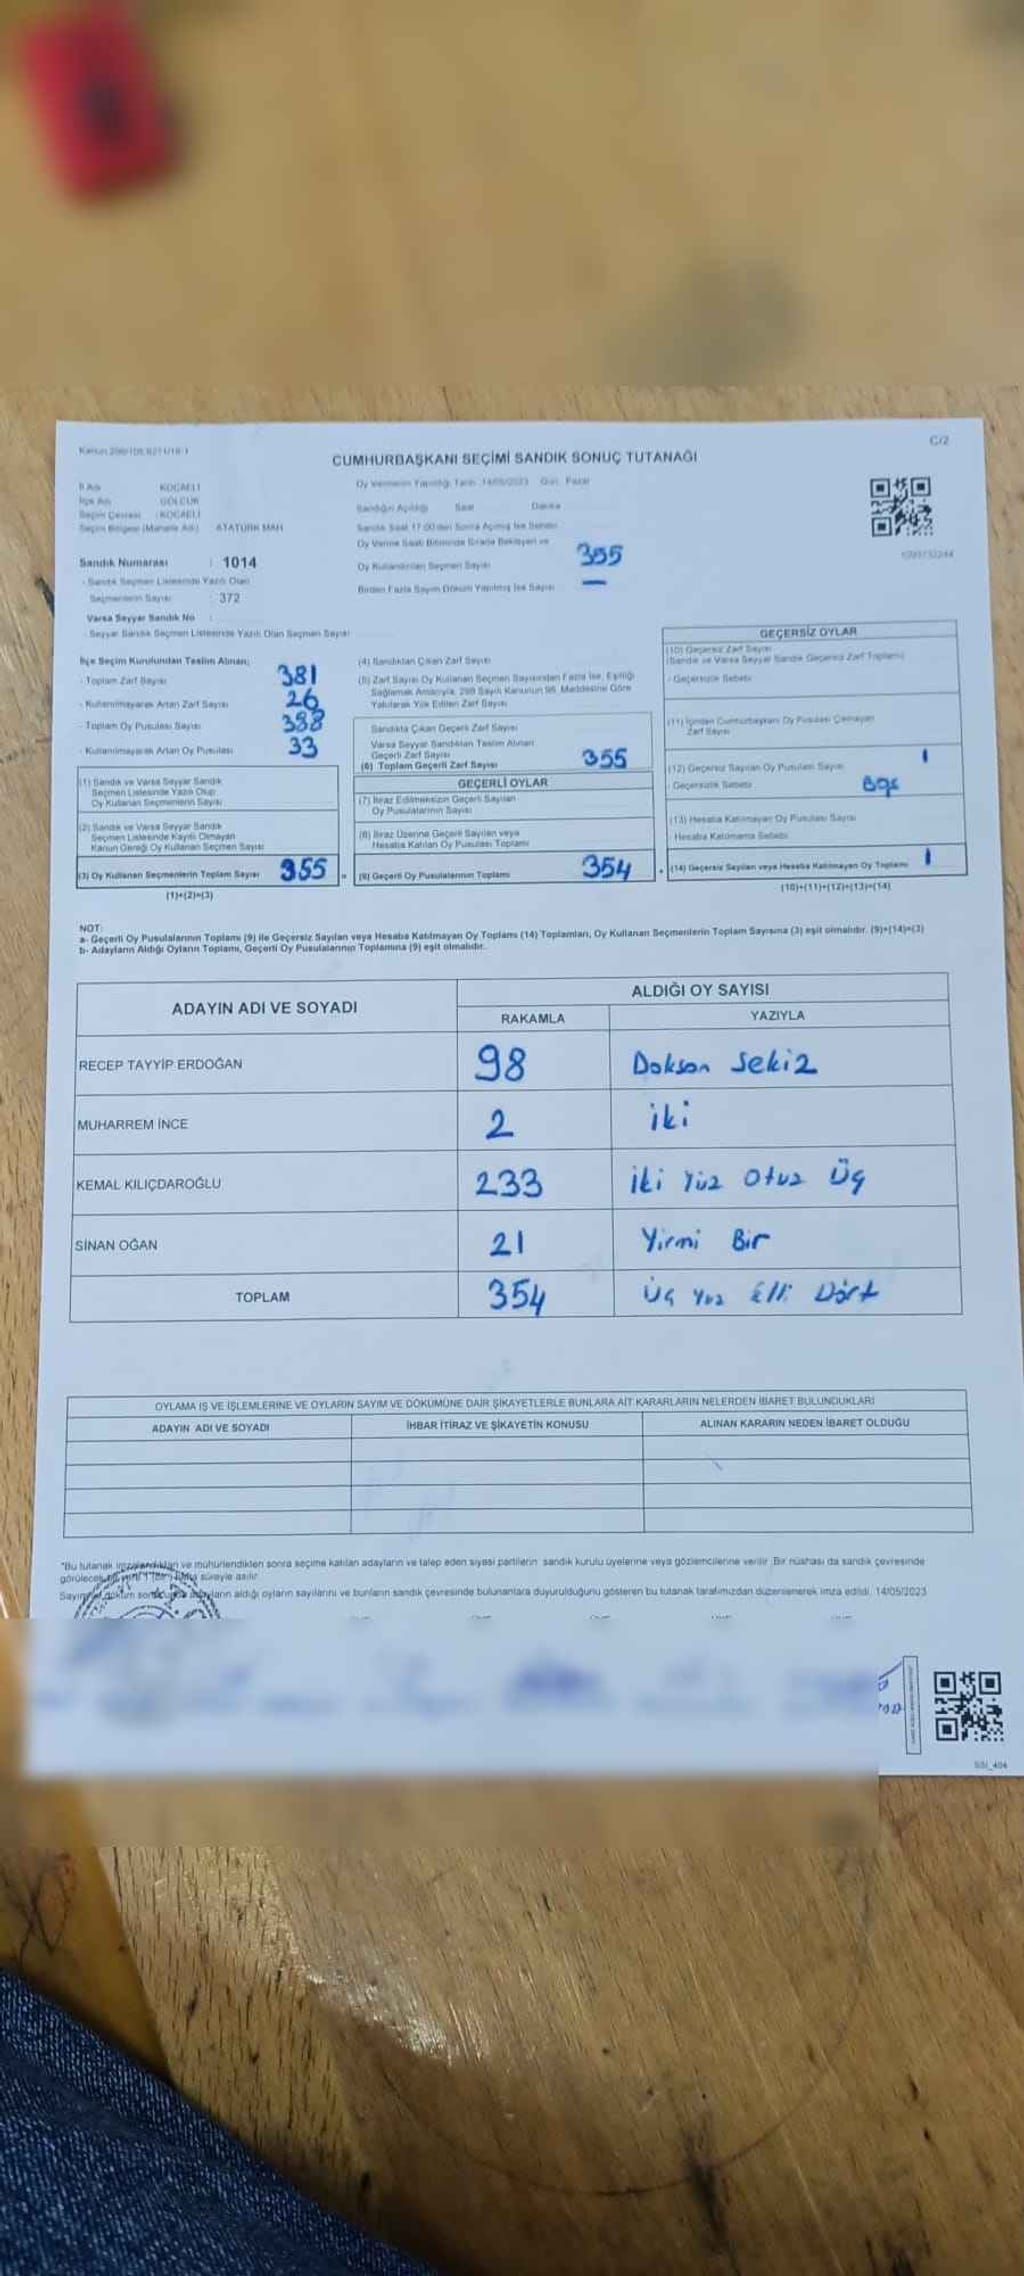 C/2
CUMHURBAŞKANI SEÇİMİ SANDIK SONUÇ TUTANAĞI
İl Adı KOCAELİ
İlçe Adı GÖLCÜK
Seçim Çevresi : KOCAELİ
Seçim Bölgesi (Mahalle Adı) ATATÜRK MAH
Oy Vermenin Yapıldığı Tarih 14/05/2023 Gün Pazar
Sandığın Açıldığı Saat Dakika
Oy Kullandırılan Seçmen Sayısı 355
Birden Fazla Sayım Döküm Yapılmış İse Sayısı —
Sandık Numarası : 1014
- Sandık Seçmen Listesinde Yazılı Olan
Seçmenlerin Sayısı : 372
Varsa Seyyar Sandık No
- Seyyar Sandık Seçmen Listesinde Yazılı Olan Seçmen Sayısı
İlçe Seçim Kurulundan Teslim Alınan;
- Toplam Zarf Sayısı 381
- Kullanılmayarak Artan Zarf Sayısı 26
- Toplam Oy Pusulası Sayısı 388
- Kullanılmayarak Artan Oy Pusulası 33
(1) Sandık ve Varsa Seyyar Sandık
Seçmen Listesinde Yazılı Olup
Oy Kullanan Seçmenlerin Sayısı
(2) Sandık ve Varsa Seyyar Sandık
Seçmen Listesinde Kayıtlı Olmayan
Kanun Gereği Oy Kullanan Seçmen Sayısı
(3) Oy Kullanan Seçmenlerin Toplam Sayısı 355
(1)+(2)=(3)
(4) Sandıktan Çıkan Zarf Sayısı
(5) Zarf Sayısı Oy Kullanan Seçmen Sayısından Fazla İse, Eşitliği
Sağlamak Amacıyla, 298 Sayılı Kanunun 98. Maddesine Göre
Yakılarak Yok Edilen Zarf Sayısı
Sandıkta Çıkan Geçerli Zarf Sayısı
Varsa Seyyar Sandıktan Teslim Alınan
Geçerli Zarf Sayısı
(6) Toplam Geçerli Zarf Sayısı 355
GEÇERLİ OYLAR
(7) İtiraz Edilmeksizin Geçerli Sayılan
Oy Pusulalarının Sayısı
(8) İtiraz Üzerine Geçerli Sayılan veya
Hesaba Katılan Oy Pusulası Toplamı
(9) Geçerli Oy Pusulalarının Toplamı 354
GEÇERSİZ OYLAR
(10) Geçersiz Zarf Sayısı
(Sandık ve Varsa Seyyar Sandık Geçersiz Zarf Toplamı)
- Geçersizlik Sebebi
(11) İçinden Cumhurbaşkanı Oy Pusulası Çıkmayan
Zarf Sayısı
(12) Geçersiz Sayılan Oy Pusulası Sayısı 1
- Geçersizlik Sebebi Boş
(13) Hesaba Katılmayan Oy Pusulası Sayısı
Hesaba Katılmama Sebebi
(14) Geçersiz Sayılan veya Hesaba Katılmayan Oy Toplamı 1
(10)+(11)+(12)+(13)=(14)
NOT:
a- Geçerli Oy Pusulalarının Toplamı (9) ile Geçersiz Sayılan veya Hesaba Katılmayan Oy Toplamı (14) Toplamları, Oy Kullanan Seçmenlerin Toplam Sayısına (3) eşit olmalıdır. (9)+(14)=(3)
b- Adayların Aldığı Oyların Toplamı, Geçerli Oy Pusulalarının Toplamına (9) eşit olmalıdır.
ADAYIN ADI VE SOYADI ALDIĞI OY SAYISI
RAKAMLA YAZIYLA
RECEP TAYYİP ERDOĞAN 98 Doksan Sekiz
MUHARREM İNCE 2 iki
KEMAL KILIÇDAROĞLU 233 iki Yüz Otuz Üç
SİNAN OĞAN 21 Yirmi Bir
TOPLAM 354 Üç Yüz Elli Dört
OYLAMA İŞ VE İŞLEMLERİNE VE OYLARIN SAYIM VE DÖKÜMÜNE DAİR ŞİKAYETLERLE BUNLARA AİT KARARLARIN NELERDEN İBARET BULUNDUKLARI
ADAYIN ADI VE SOYADI İHBAR İTİRAZ VE ŞİKAYETİN KONUSU ALINAN KARARIN NEDEN İBARET OLDUĞU
*Bu tutanak imzalandıktan ve mühürlendikten sonra seçime katılan adayların ve talep eden siyasi partilerin sandık kurulu üyelerine veya gözlemcilerine verilir. Bir nüshası da sandık çevresinde
süreyle asılır.
adayların aldığı oyların sayılarını ve bunların sandık çevresinde bulunanlara duyurulduğunu gösteren bu tutanak tarafımızdan düzenlenerek imza edildi. 14/05/2023